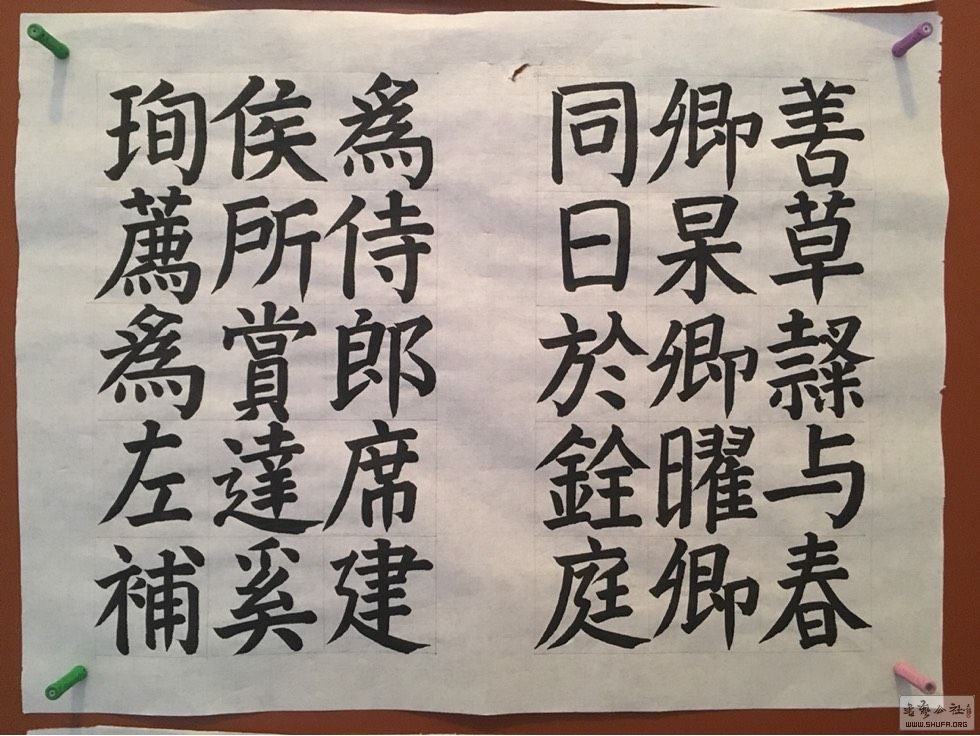 善草隸与春
卿杲卿曜卿
同日於銓庭
爲侍郎席建
侯所賞達奚
珣薦爲左補
书艺公社
WWW.SHUFA.ORG